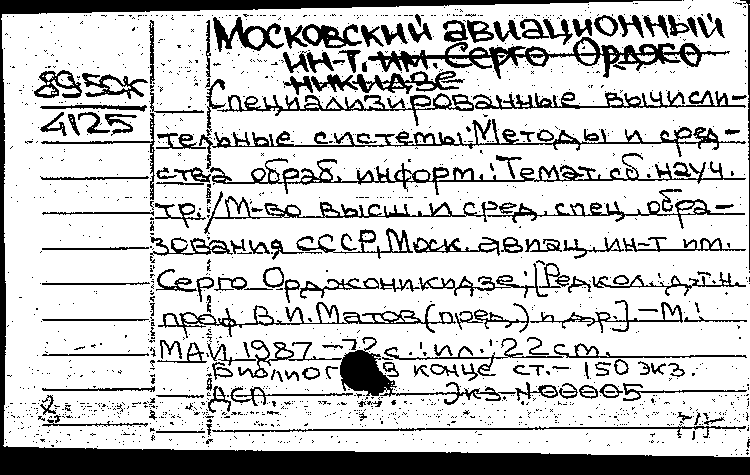 Московский авиационный
ин-т, им. Серго Орджо
никидзе
89-50к
4125
Специализированные вычисли-
тельные системы; Методы и сред-
ства обраб. информ.: Темат. сб. науч.
тр. / М-во высш. и сред. спец. обра-
зования СССР, Моск. авиац. ин-т им.
Серго Орджоникидзе; [Редкол.: д.т.н.
проф. В.И. Матов (пред.) и др.] - М.:
МАИ, 1987. - 72 с.: ил.; 22 см.
Библиог в конце ст. - 150 экз.
ДСП. Экз. N 00005.